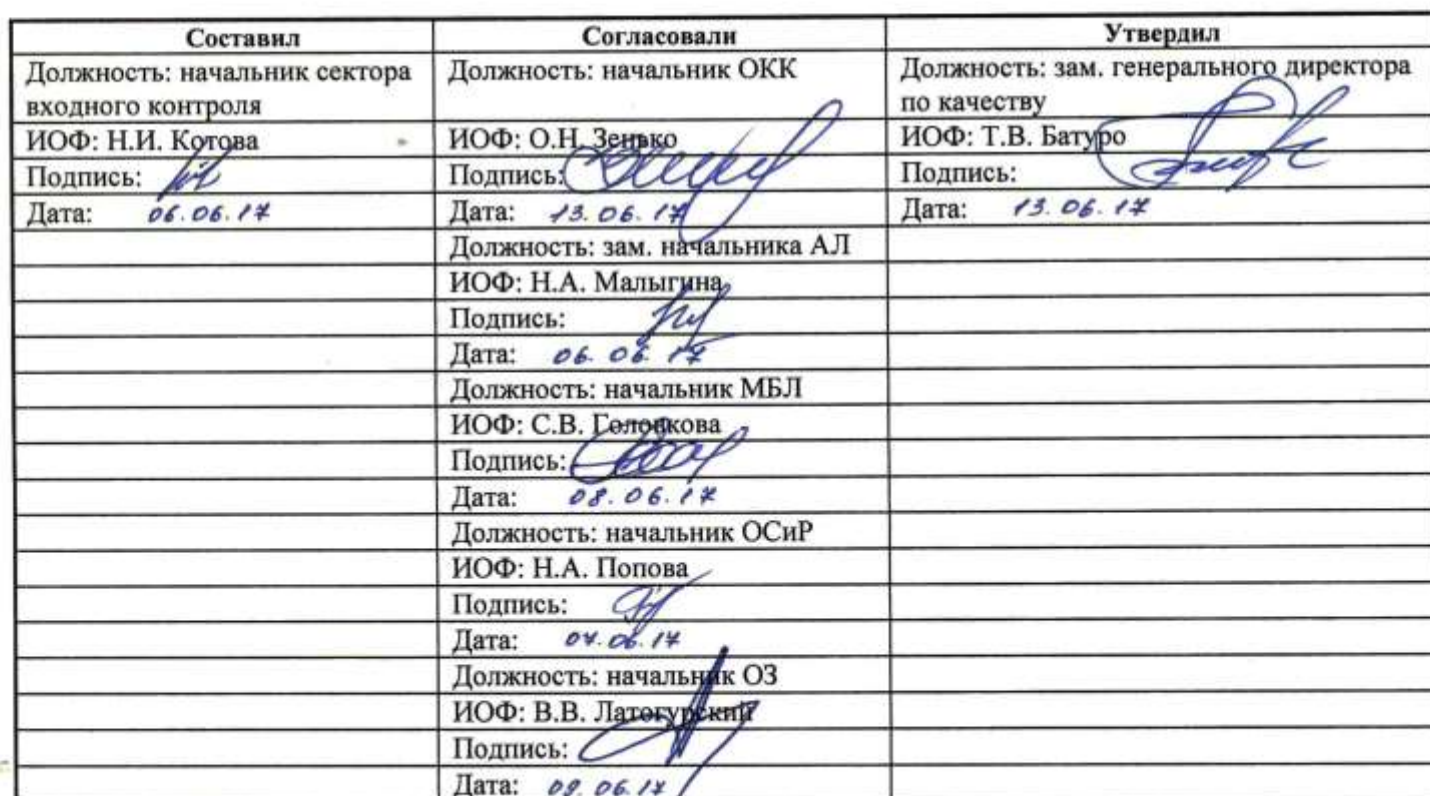 Составил Согласовали Утвердил
Должность: начальник сектора Должность: начальник ОКК Должность: зам. генерального директора
входного контроля по качеству
ИОФ: Н.И. Котова ИОФ: О.Н. Зенько ИОФ: Т.В. Батуро
Подпись: Подпись: Подпись:
Дата: 06.06.17 Дата: 13.06.17 Дата: 13.06.17
Должность: зам. начальника АЛ
ИОФ: Н.А. Малыгина
Подпись:
Дата: 06.06.17
Должность: начальник МБЛ
ИОФ: С.В. Головкова
Подпись:
Дата: 08.06.17
Должность: начальник ОСиР
ИОФ: Н.А. Попова
Подпись:
Дата: 07.06.17
Должность: начальник ОЗ
ИОФ: В.В. Латогурский
Подпись:
Дата: 09.06.17